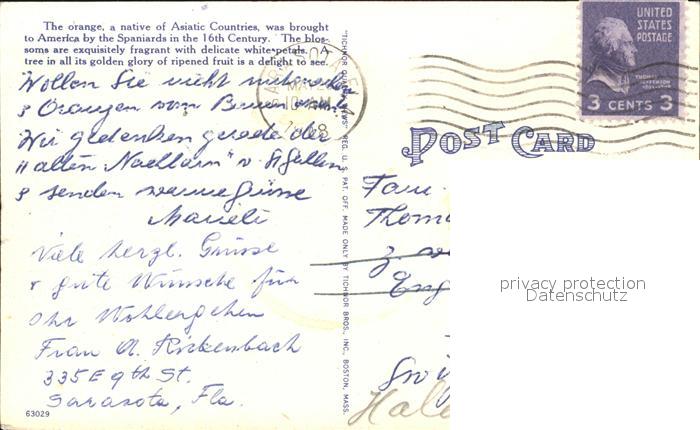 The orange, a native of Asiatic Countries, was brought
to America by the Spaniards in the 16th Century. The blos-
soms are exquisitely fragrant with delicate white petals. A
tree in all its golden glory of ripened fruit is a delight to see.
Wollen Sie nicht
& Orangen vom
Wir gedenken gerade der
"alten Nachbarn" v. St. Gallen
& senden warme Grüsse
Marieli
Viele herzl. Grüsse
& gute Wünsche für
Ihr Wohlergehen
Frau A. Rickenbach
335 E 9th St.
Sarasota, Fla.
63029
"TICHNOR QUALITY VIEWS" REG. U. S. PAT. OFF. MADE ONLY BY TICHNOR BROS., INC., BOSTON, MASS.
10 AM
UNITED
STATES
POSTAGE
THOMAS
JEFFERSON
3 CENTS 3
POST CARD
Fam.
Thom
Eng
privacy protection
Datenschutz